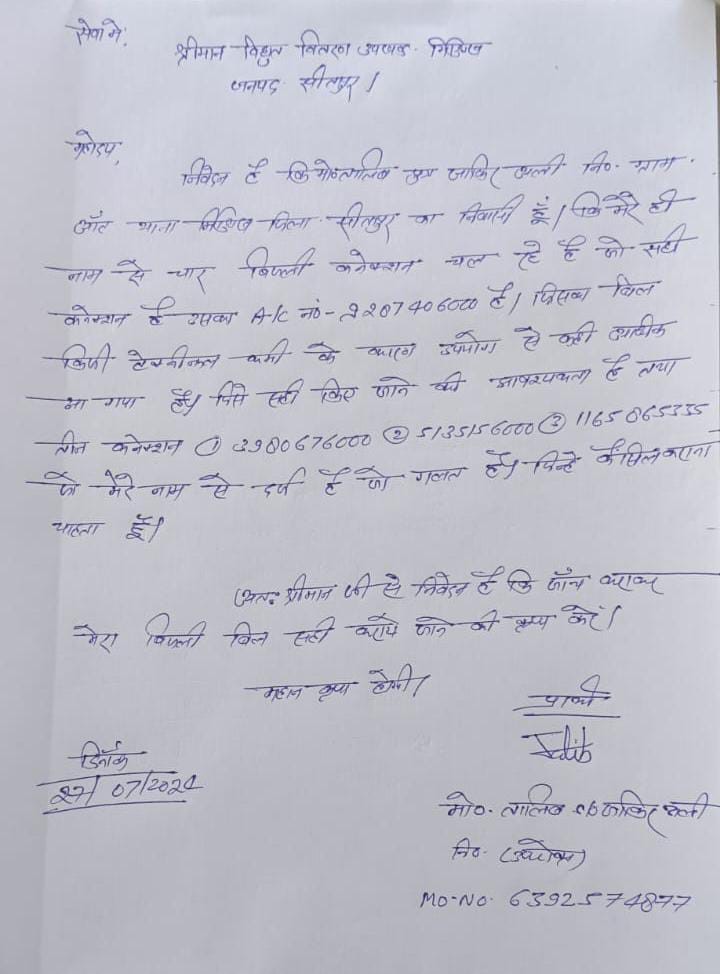 सेवा में,
श्रीमान विद्युत वितरण उपखण्ड मिश्रिख
जनपद सीतापुर।
महोदय,
निवेदन है कि मो० तालिब पुत्र जाकिर अली नि०- ग्राम-
आँट थाना मिश्रिख जिला- सीतापुर का निवासी हूँ। कि मेरे ही
नाम से चार बिजली कनेक्शन चल रहे है जो सही
कनेक्शन है उसका A/c नं०- 2207406000 है। जिसका बिल
किसी टेक्नीकल कमी के कारण उपयोग से कही अधिक
आ गया है। जिसे सही किए जाने की आवश्यकता है तथा
तीन कनेक्शन ① 3980676000 ② 5135156000 ③ 1165865335
जो मेरे नाम से दर्ज है जो गलत है। जिन्हे कैंसिल कराना
चाहता हूँ।
अतः श्रीमान जी से निवेदन है कि जाँच कराकर
मेरा बिजली बिल सही कराये जाने की कृपा करें।
महान कृपा होगी।
प्रार्थी
Talib
दिनाँक
27/07/2024
मो०- तालिब s/o जाकिर अली
नि०- (उपरोक्त)
MO-NO- 6392574877